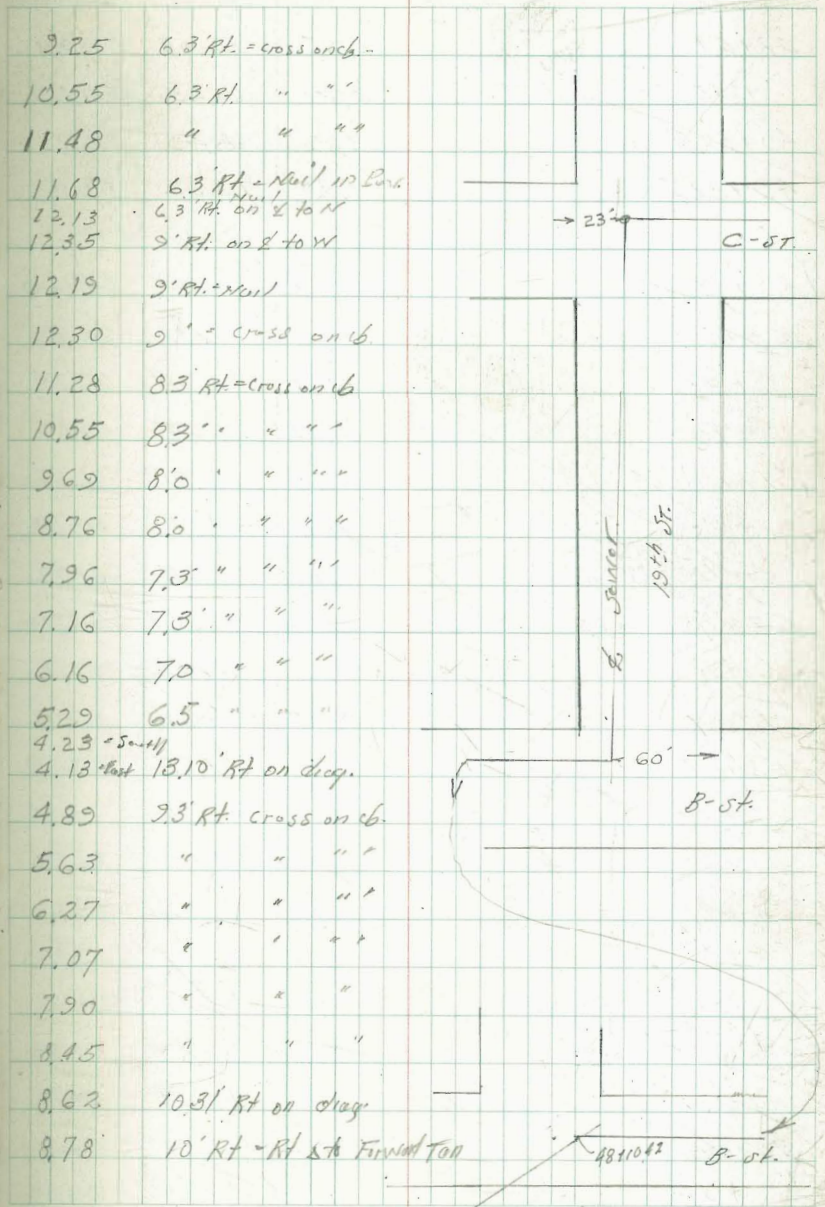 9.25 6.3' Rt. = cross on cb.
10.55 6.3' Rt. " " "
11.48 " " " "
11.68 6.3' Rt = Nail in
12.13 6.3' Rt. Nail on ℄ to N
12.35 9' Rt. on ℄ to W
12.19 9' Rt. = Nail
12.30 9' " = cross on cb
11.28 8.3' Rt. = cross on cb
10.55 8.3' " " " "
9.69 8.0' " " " "
8.76 8.0 " " " "
7.96 7.3' " " " "
7.16 7.3' " " " "
6.16 7.0 " " "
5.29 6.5 " " "
4.23 = South
4.13 = East 13.10' Rt on diag.
4.89 9.3' Rt. Cross on cb.
5.63 " " " "
6.27 " " " "
7.07 " " " "
7.90 " " "
8.45 " " "
8.62 10.31' Rt on diag.
8.78 10' Rt - Rt Δ to Forward Tan
23'
C - ST.
℄ Sewer
19th St.
60'
B - st.
48+10.42 B - st.